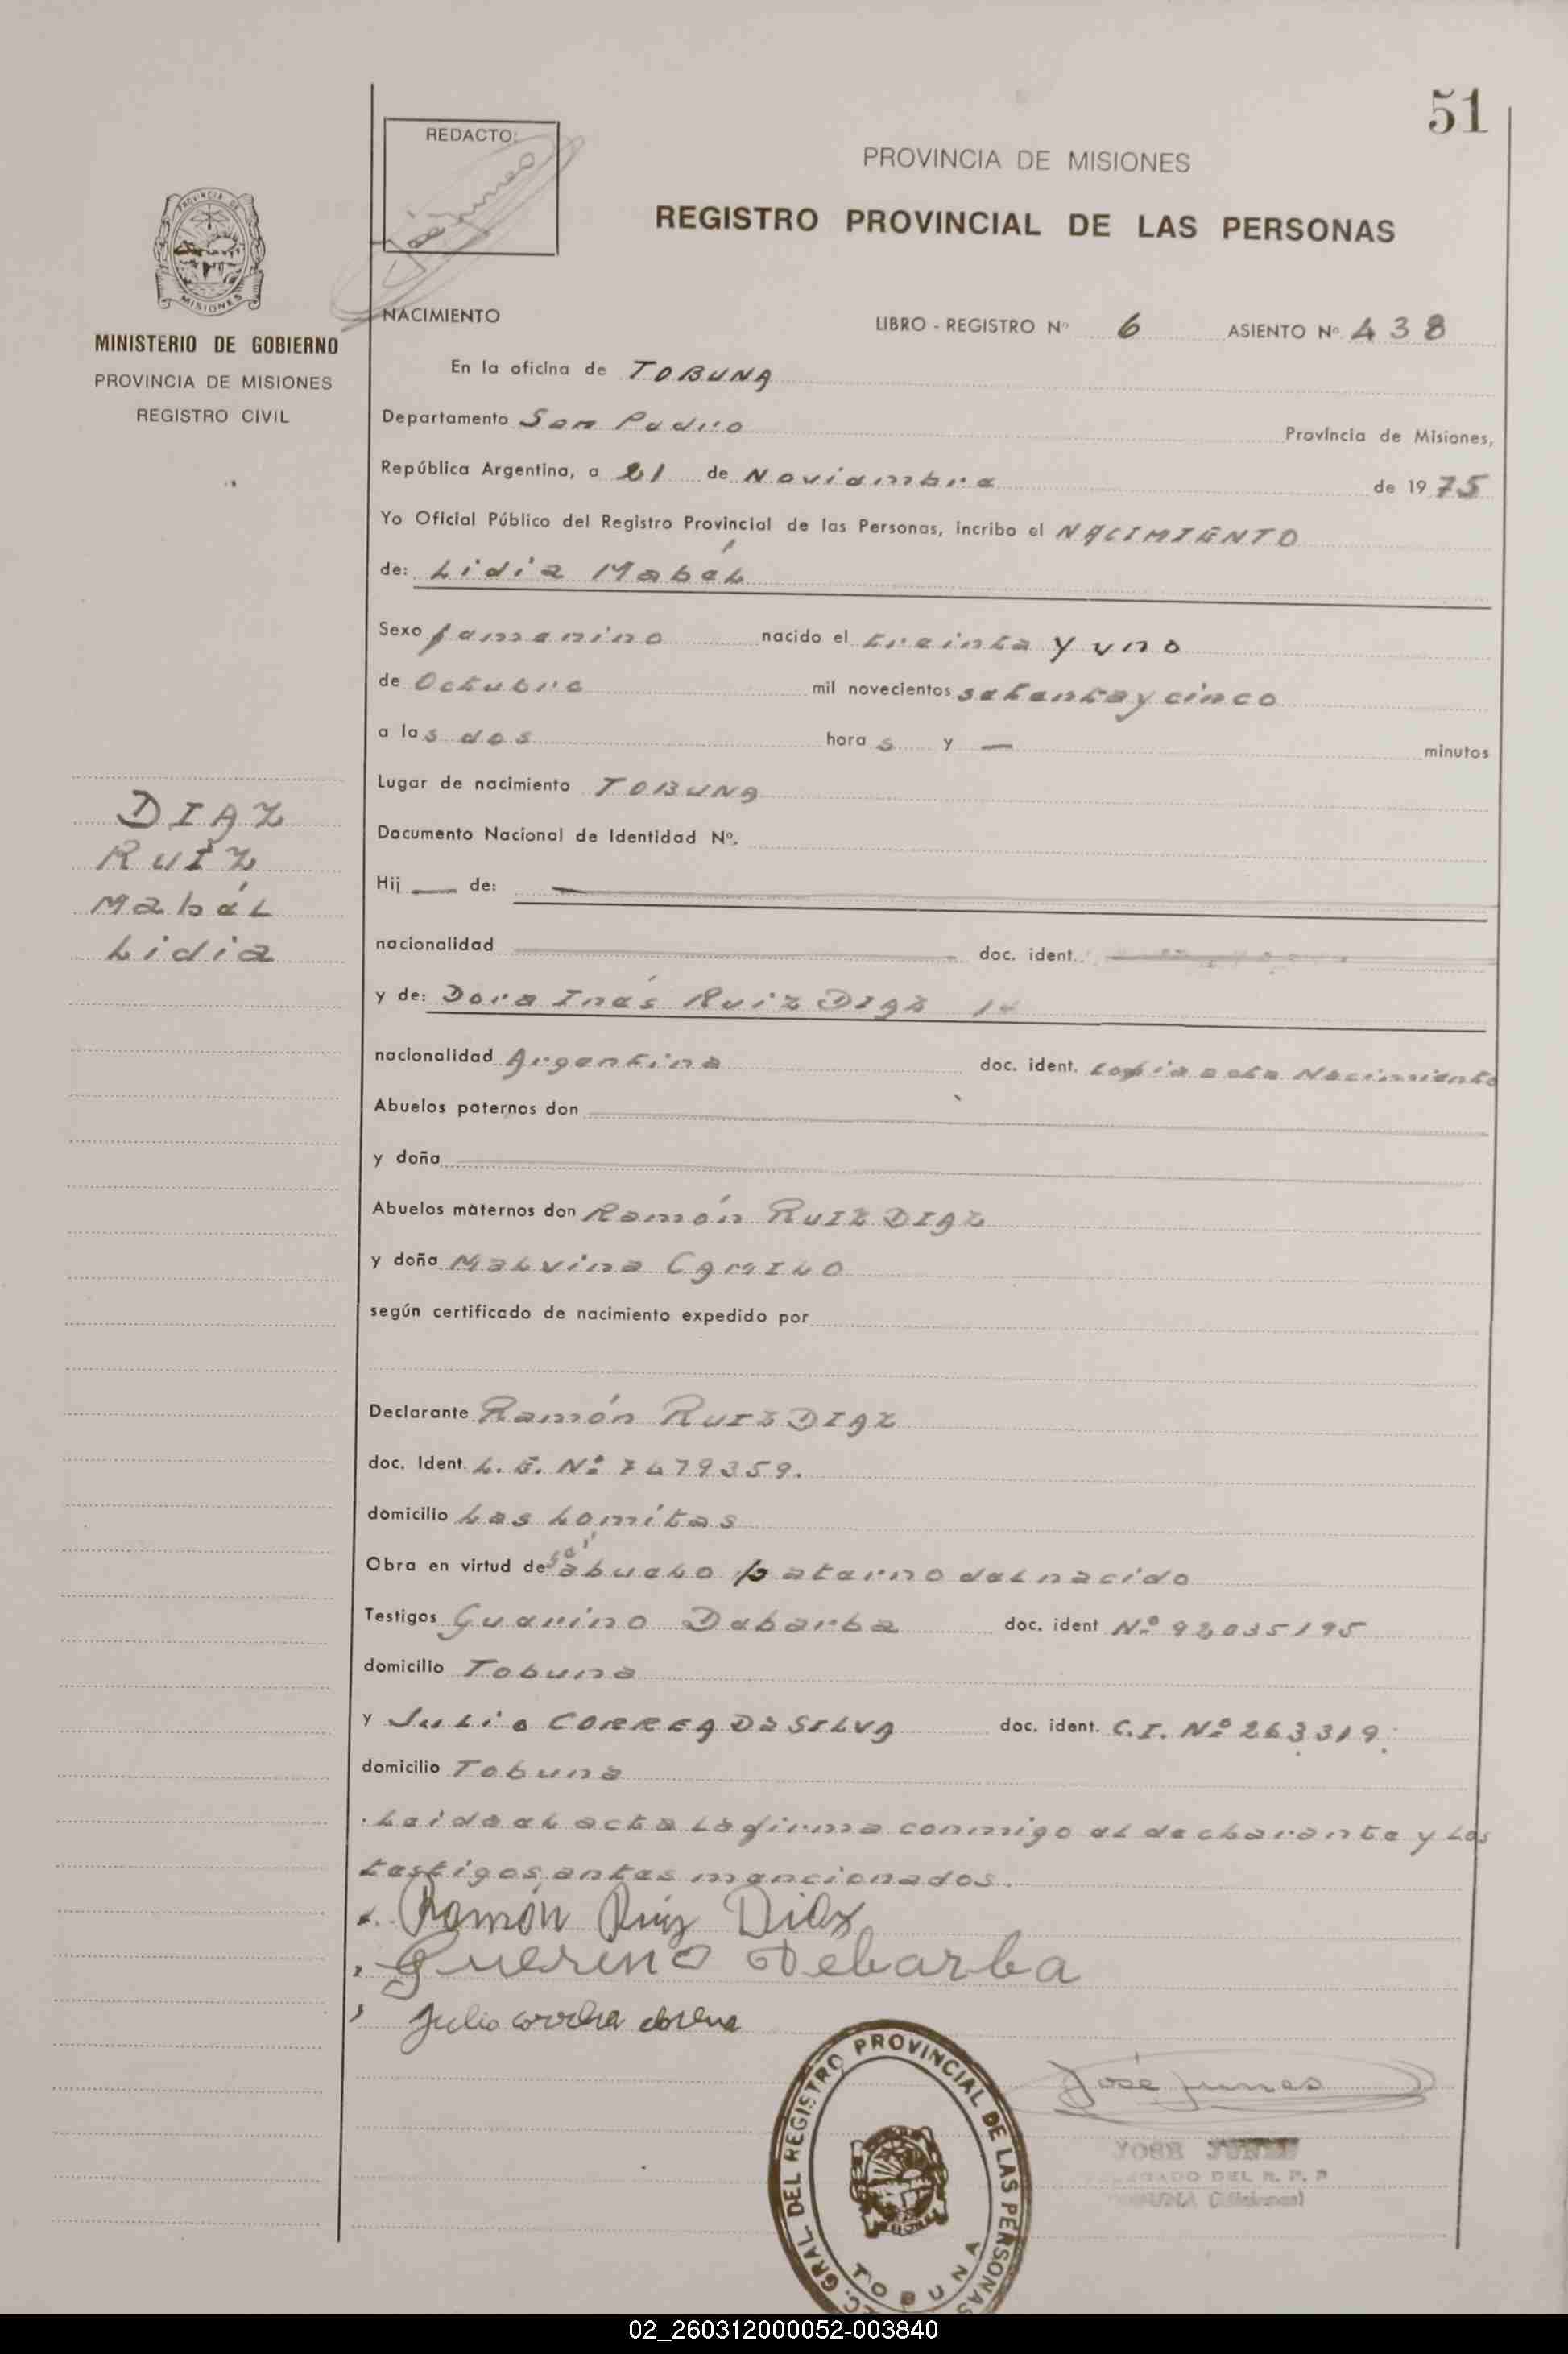 51
REDACTO:
PROVINCIA DE MISIONES
REGISTRO PROVINCIAL DE LAS PERSONAS
MISIONES
MINISTERIO DE GOBIERNO
PROVINCIA DE MISIONES
REGISTRO CIVIL
NACIMIENTO
LIBRO - REGISTRO Nº 6 ASIENTO Nº 438
En la oficina de TOBUNA
Departamento San Pedro Provincia de Misiones,
República Argentina, a 21 de Noviembre de 1975
Yo Oficial Público del Registro Provincial de las Personas, incribo el NACIMIENTO
de: Lidia Mabél
Sexo femenino nacido el treinta y uno
de Octubre mil novecientos setenta y cinco
a las dos horas y — minutos
Lugar de nacimiento TOBUNA
Documento Nacional de Identidad Nº.
DIAZ
RUIZ
Mabél
Lidia
Hij — de: —
nacionalidad — doc. ident. —
y de: Dora Inés Ruiz DIAZ
nacionalidad Argentina doc. ident. copia acta Nacimiento
Abuelos paternos don —
y doña —
Abuelos maternos don Ramón RUIZ DIAZ
y doña Malvina CAMILO
según certificado de nacimiento expedido por
Declarante Ramón RUIZ DIAZ
doc. Ident. L. E. Nº 7479359.
domicilio Las Lomitas
Obra en virtud de ser abuelo paterno del nacido
Testigos Guerino Debarba doc. ident Nº 98035195
domicilio Tobuna
y Julio CORREA DA SILVA doc. ident. C.I. Nº 263319.
domicilio Tobuna
Leida el acta la firma conmigo el declarante y los
testigos antes mencionados.
Ramón Ruiz Diaz
Guerino Debarba
Julio correa
José Junes
JOSE
DEL R. P. P
GRAL. DEL REGISTRO PROVINCIAL DE LAS PERSONAS
TOBUNA
02_260312000052-003840